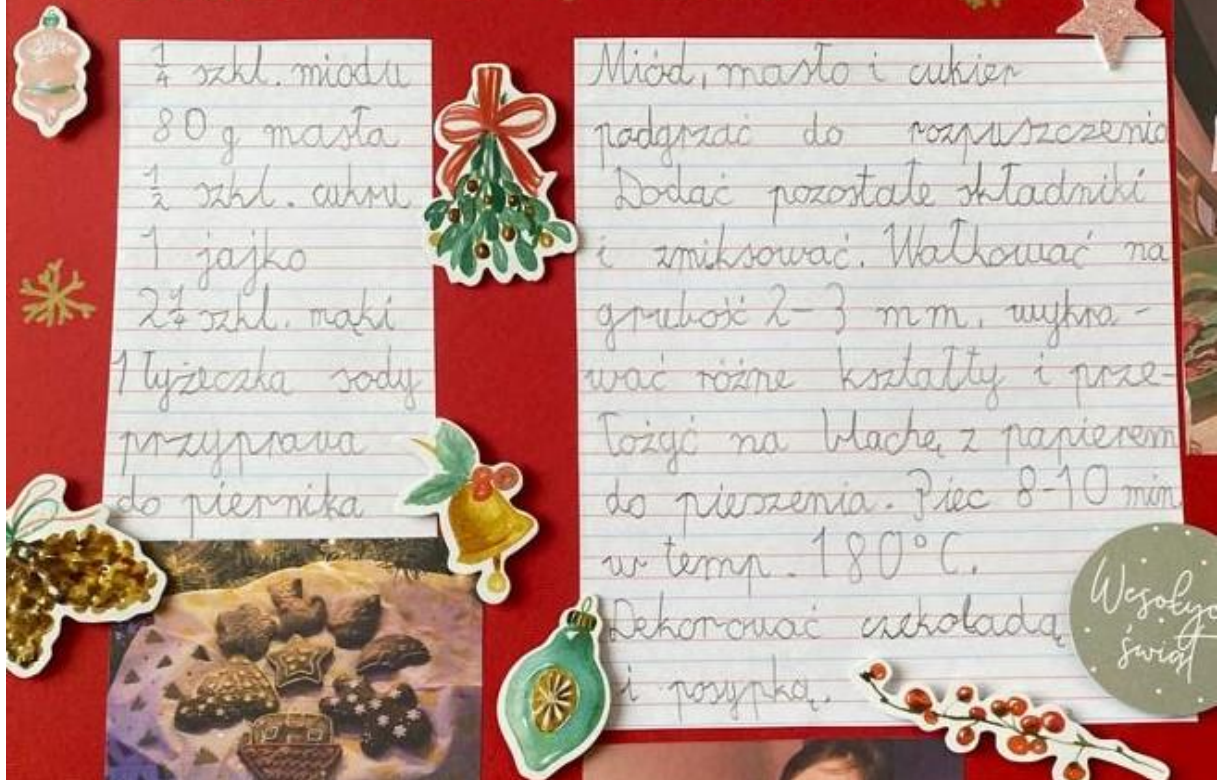 1/4 szkl. miodu
80 g masła
1/2 szkl. cukru
1 jajko
2 1/4 szkl. mąki
1 łyżeczka sody
przyprawa
do piernika
Miód, masło i cukier
podgrzać do rozpuszczenia
Dodać pozostałe składniki
i zmiksować. Wałkować na
grubość 2-3 mm, wykra-
wać różne kształty i prze-
łożyć na blachę z papierem
do pieszenia. Piec 8-10 min
w temp. 180°C.
Dekorować czekoladą
i posypką.
Wesołyc
świąt